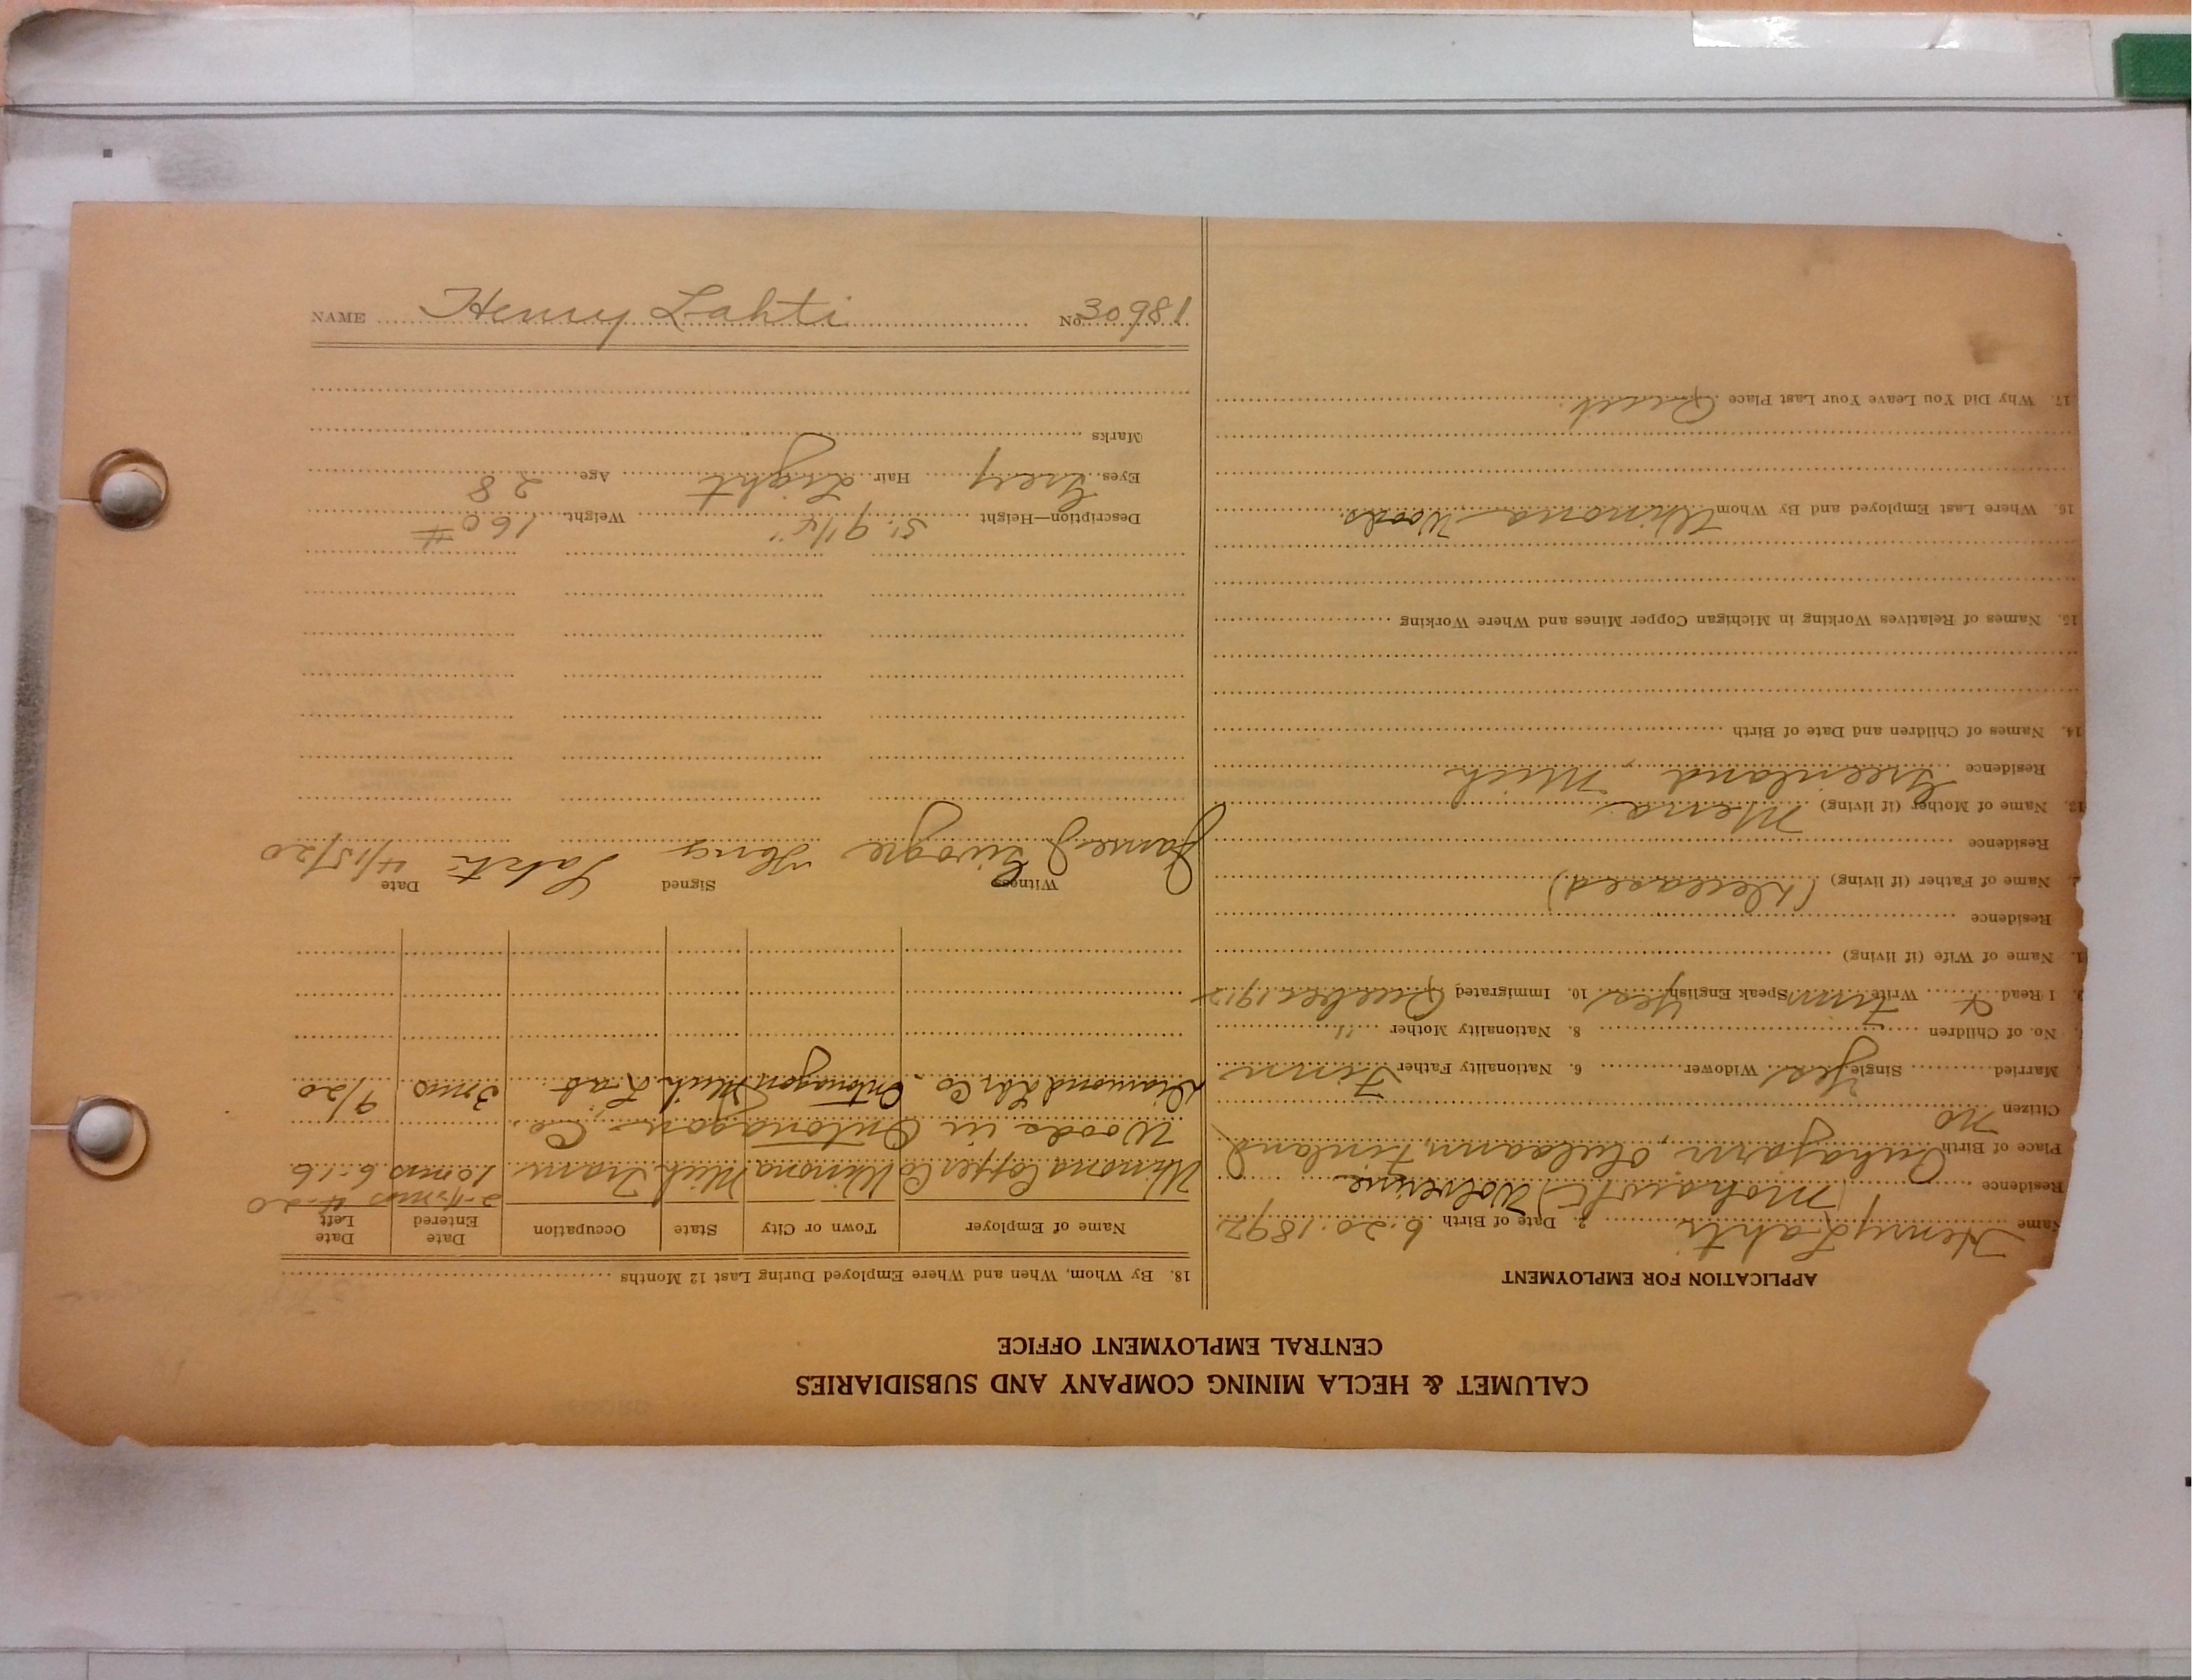 CALUMET & HECLA MINING COMPANY AND SUBSIDIARIES
CENTRAL EMPLOYMENT OFFICE
APPLICATION FOR EMPLOYMENT
Name Henry Lahti 2. Date of Birth 6.20.1892
Residence (Mohawk) Wolverine
Place of Birth Finland
Citizen No
Married Single Yes Widower 6. Nationality Father Finn
No. of Children 8. Nationality Mother "
9. I Read & Write Finn Speak English Yes 10. Immigrated 1912
1. Name of Wife (if living)
Residence
2. Name of Father (if living) (Deceased)
Residence
13. Name of Mother (if living)
Residence Greenland, Mich
14. Names of Children and Date of Birth
15. Names of Relatives Working in Michigan Copper Mines and Where Working
16. Where Last Employed and By Whom Winona Woods.
17. Why Did You Leave Your Last Place Quit.
18. By Whom, When and Where Employed During Last 12 Months
Name of Employer Town or City State Occupation Date Entered Date Left
4-20
Winona Copper Co Winona Mich Tram 10 mos 6-16
Woods in Ontonagon Co.
Diamond Lbr Co. Ontonagon Mich Lab. 3 mos 9/20
Witness Signed Date
James Henry Lahti 4/15/20
Description—Height 5' 9 1/4" Weight 160 #
Eyes Grey Hair Light Age 28
Marks
NAME Henry Lahti No. 30981